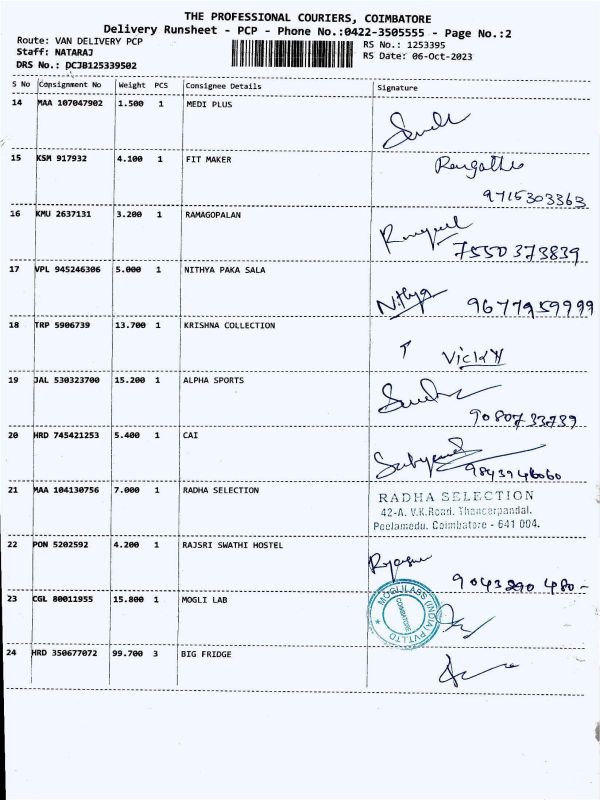 THE PROFESSIONAL COURIERS, COIMBATORE
Delivery Runsheet - PCP - Phone No.:0422-3505555 - Page No.:2
Route: VAN DELIVERY PCP
RS No.: 1253395
Staff: NATARAJ
RS Date: 06-Oct-2023
DRS No.: DCJB125339502
S No Consignment No Weight PCS Consignee Details Signature
14 MAA 107047902 1.500 1 MEDI PLUS
15 KSM 917932 4.100 1 FIT MAKER
9715303363
16 KMU 2637131 3.200 1 RAMAGOPALAN
7550373839
17 VPL 945246306 5.000 1 NITHYA PAKA SALA
Nithya 9677959999
18 TRP 5906739 13.700 1 KRISHNA COLLECTION
19 JAL 530323700 15.200 1 ALPHA SPORTS
9080733739
20 HRD 745421253 5.400 1 CAI
21 MAA 104130756 7.000 1 RADHA SELECTION
RADHA SELECTION
42-A, V.K.Road, Thaneerpandal,
Peelamedu, Coimbatore - 641 004.
22 PON 5202592 4.200 1 RAJSRI SWATHI HOSTEL
9043290 480-
23 CGL 80011955 15.800 1 MOGLI LAB
MOGLILABS (INDIA) PVT.LTD
COIMBATORE
24 HRD 350677072 99.700 3 BIG FRIDGE